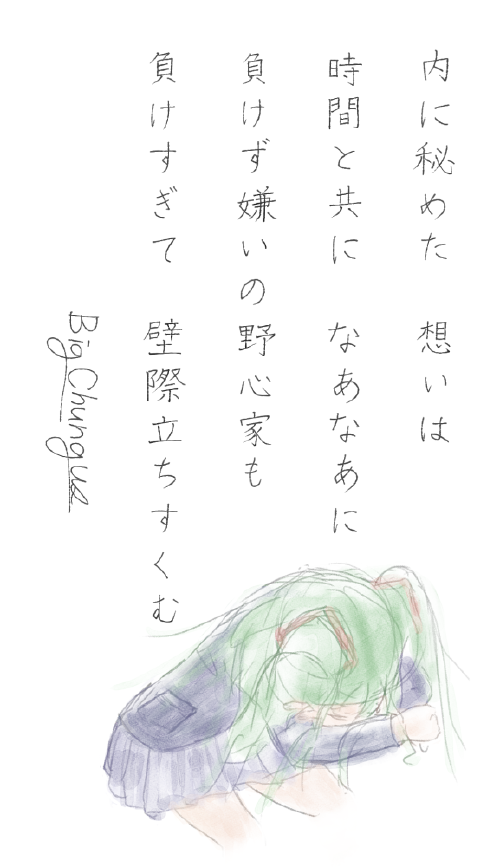 内に秘めた　想いは
時間と共に　なあなあに
負けず嫌いの野心家も
負けすぎて　壁際立ちすくむ
Big Chungus